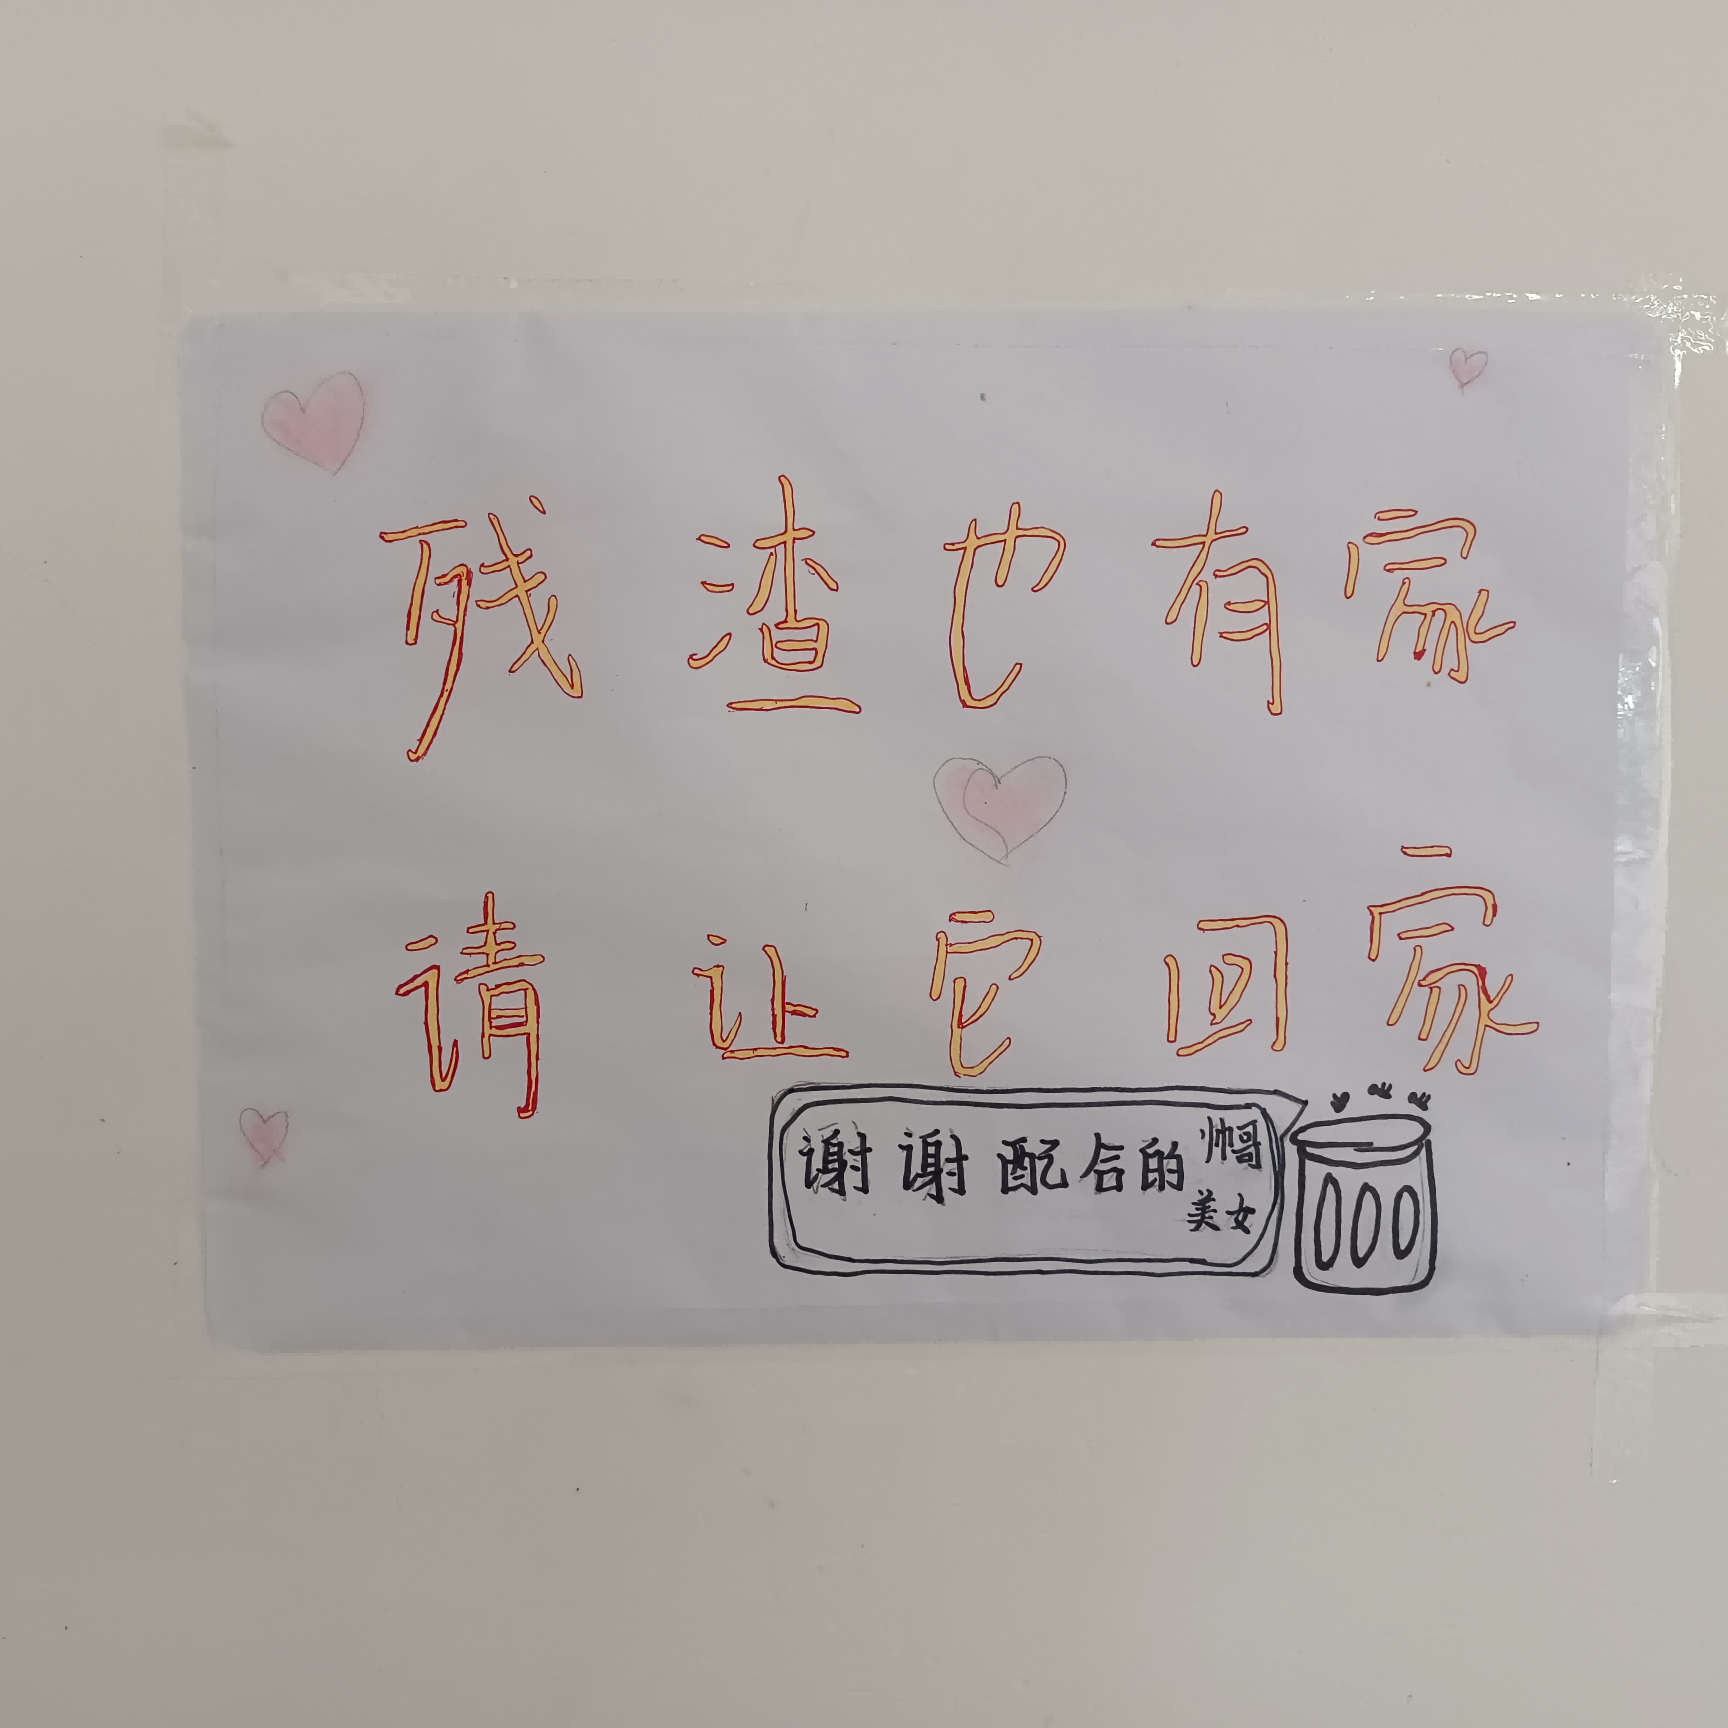 残渣也有家
请让它回家
谢谢配合的帅哥
美女